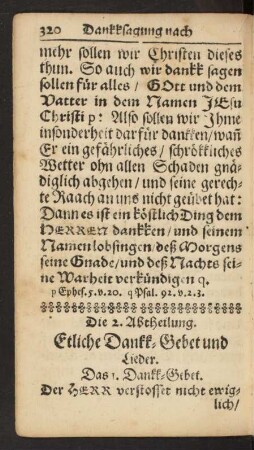 320 Dankksagung nach
mehr sollen wir Christen dieses
thun. So auch wir dankk sagen
sollen für alles / GOtt und dem
Vatter in dem Namen JEsu
Christi p: Also sollen wir Jhme
insonderheit darfür dankken/wañ
Er ein gefährliches / schrökkliches
Wetter ohn allen Schaden gnä-
diglich abgehen / und seine gerech-
te Raach an uns nicht geübet hat:
Dann es ist ein köstlich Ding dem
HERREN dankken / und seinem
Namen lobsingen / deß Morgens
seine Gnade / und deß Nachts sei-
ne Warheit verkündigen q.
p Ephes. 5. v. 20. q Psal. 92. v. 2. 3.
Die 2. Abtheilung.
Etliche Dankk-Gebet und
Lieder.
Das 1. Dankk-Gebet.
Der HERR verstosset nicht ewig-
lich/